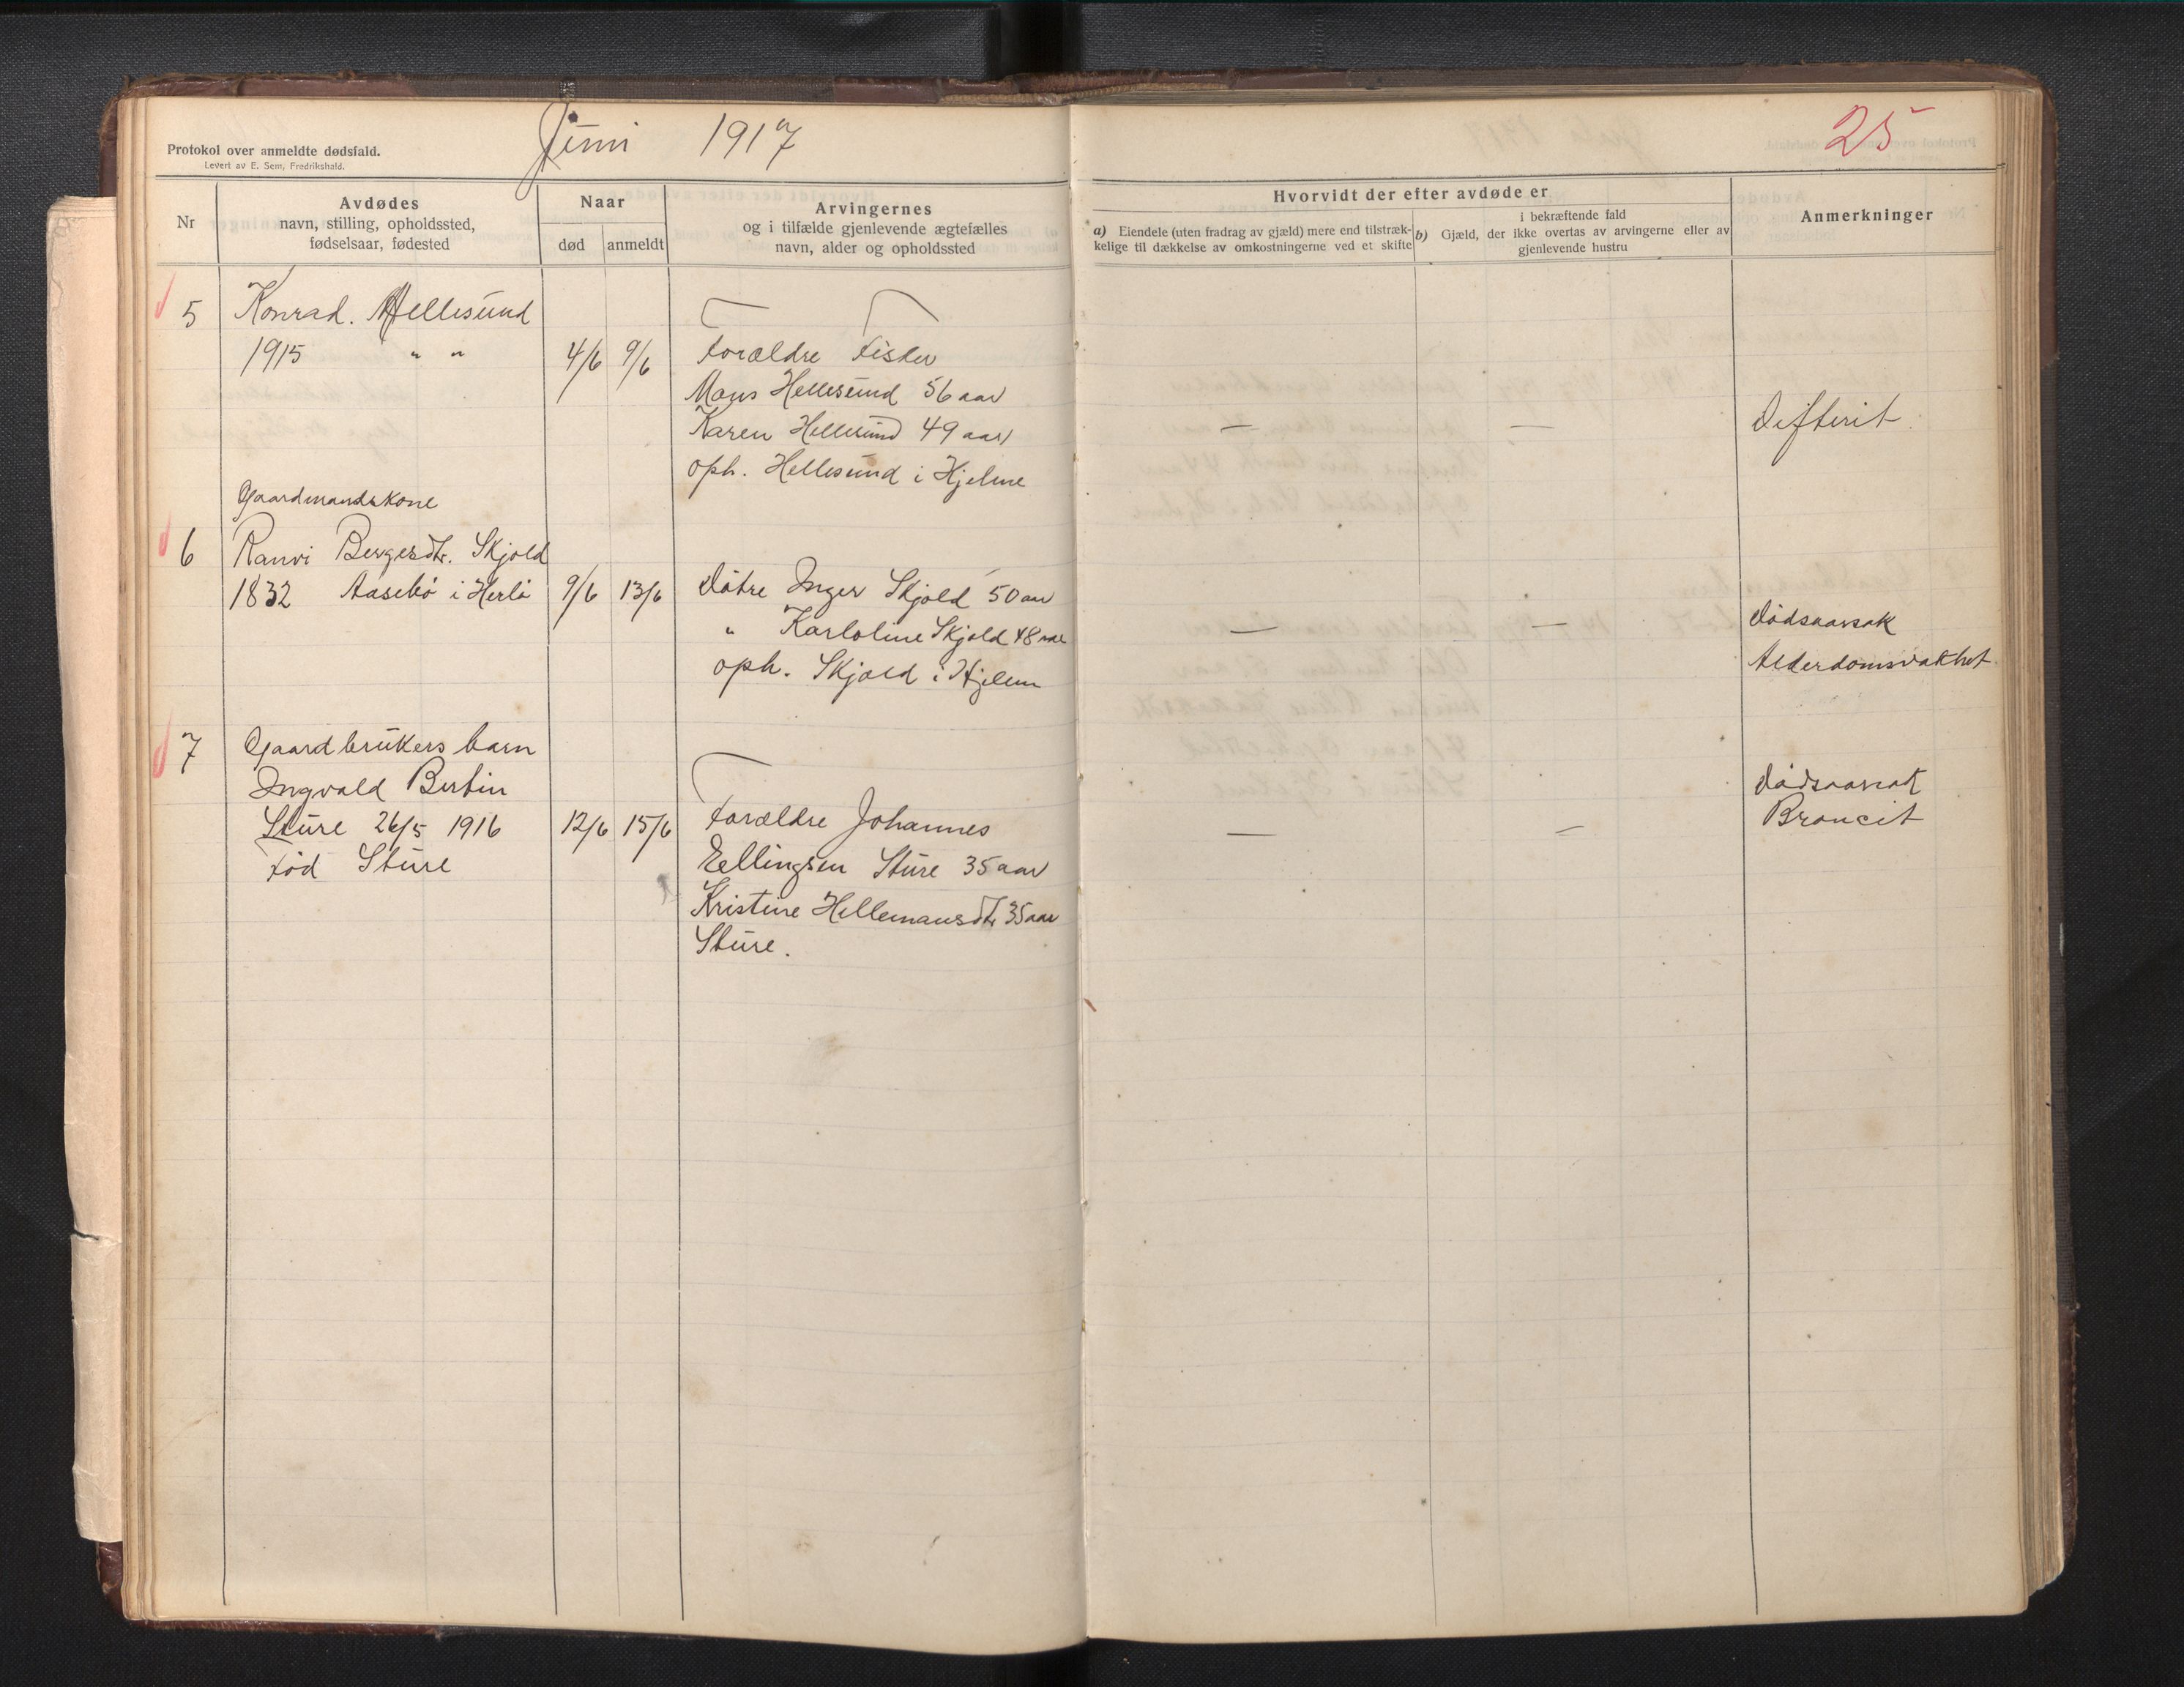 Juni 1917
25
Protokol over anmeldte dødsfald.
Levert av E. Sem, Fredrikshald.
Nr
Avdødes
navn, stilling, opholdssted,
fødselsaar, fødested
Naar
død
anmeldt
Arvingernes
og i tilfælde gjenlevende ægtefælles
navn, alder og opholdssted
Hvorvidt der efter avdøde er
a) Eiendele (uten fradrag av gjæld) mere end tilstræk-
kelige til dækkelse av omkostningerne ved et skifte
i bekræftende fald
b) Gjæld, der ikke overtas av arvingerne eller av
gjenlevende hustru
Anmerkninger
5 Konrad. Hellesund
1915 " " 4/6 9/6 Forældre Fisker
Mons Hellesund 56 aar
Karen Hellesund 49 aar — — Difterit.
oph. Hellesund i Hjelme
Gaardmandskone
6 Ranvi Bergesdtr. Skjold
1832 Aasebö i Herlö 9/6 13/6 Dötre Inger Skjold 50 aar
" Karloline Skjold 48 aar — — Dödsaarsak
oph. Skjold i Hjelm Alderdomsvakhet
7 Gaardbrukers barn
Ingvald Bertin Dödsaarsak
Sture 26/5 1916 12/6 15/6 Forældre Johannes — — Broncit
Föd Sture Eellingsen Sture 35 aar
Kristine Hellemansdtr 35 aar
Sture.